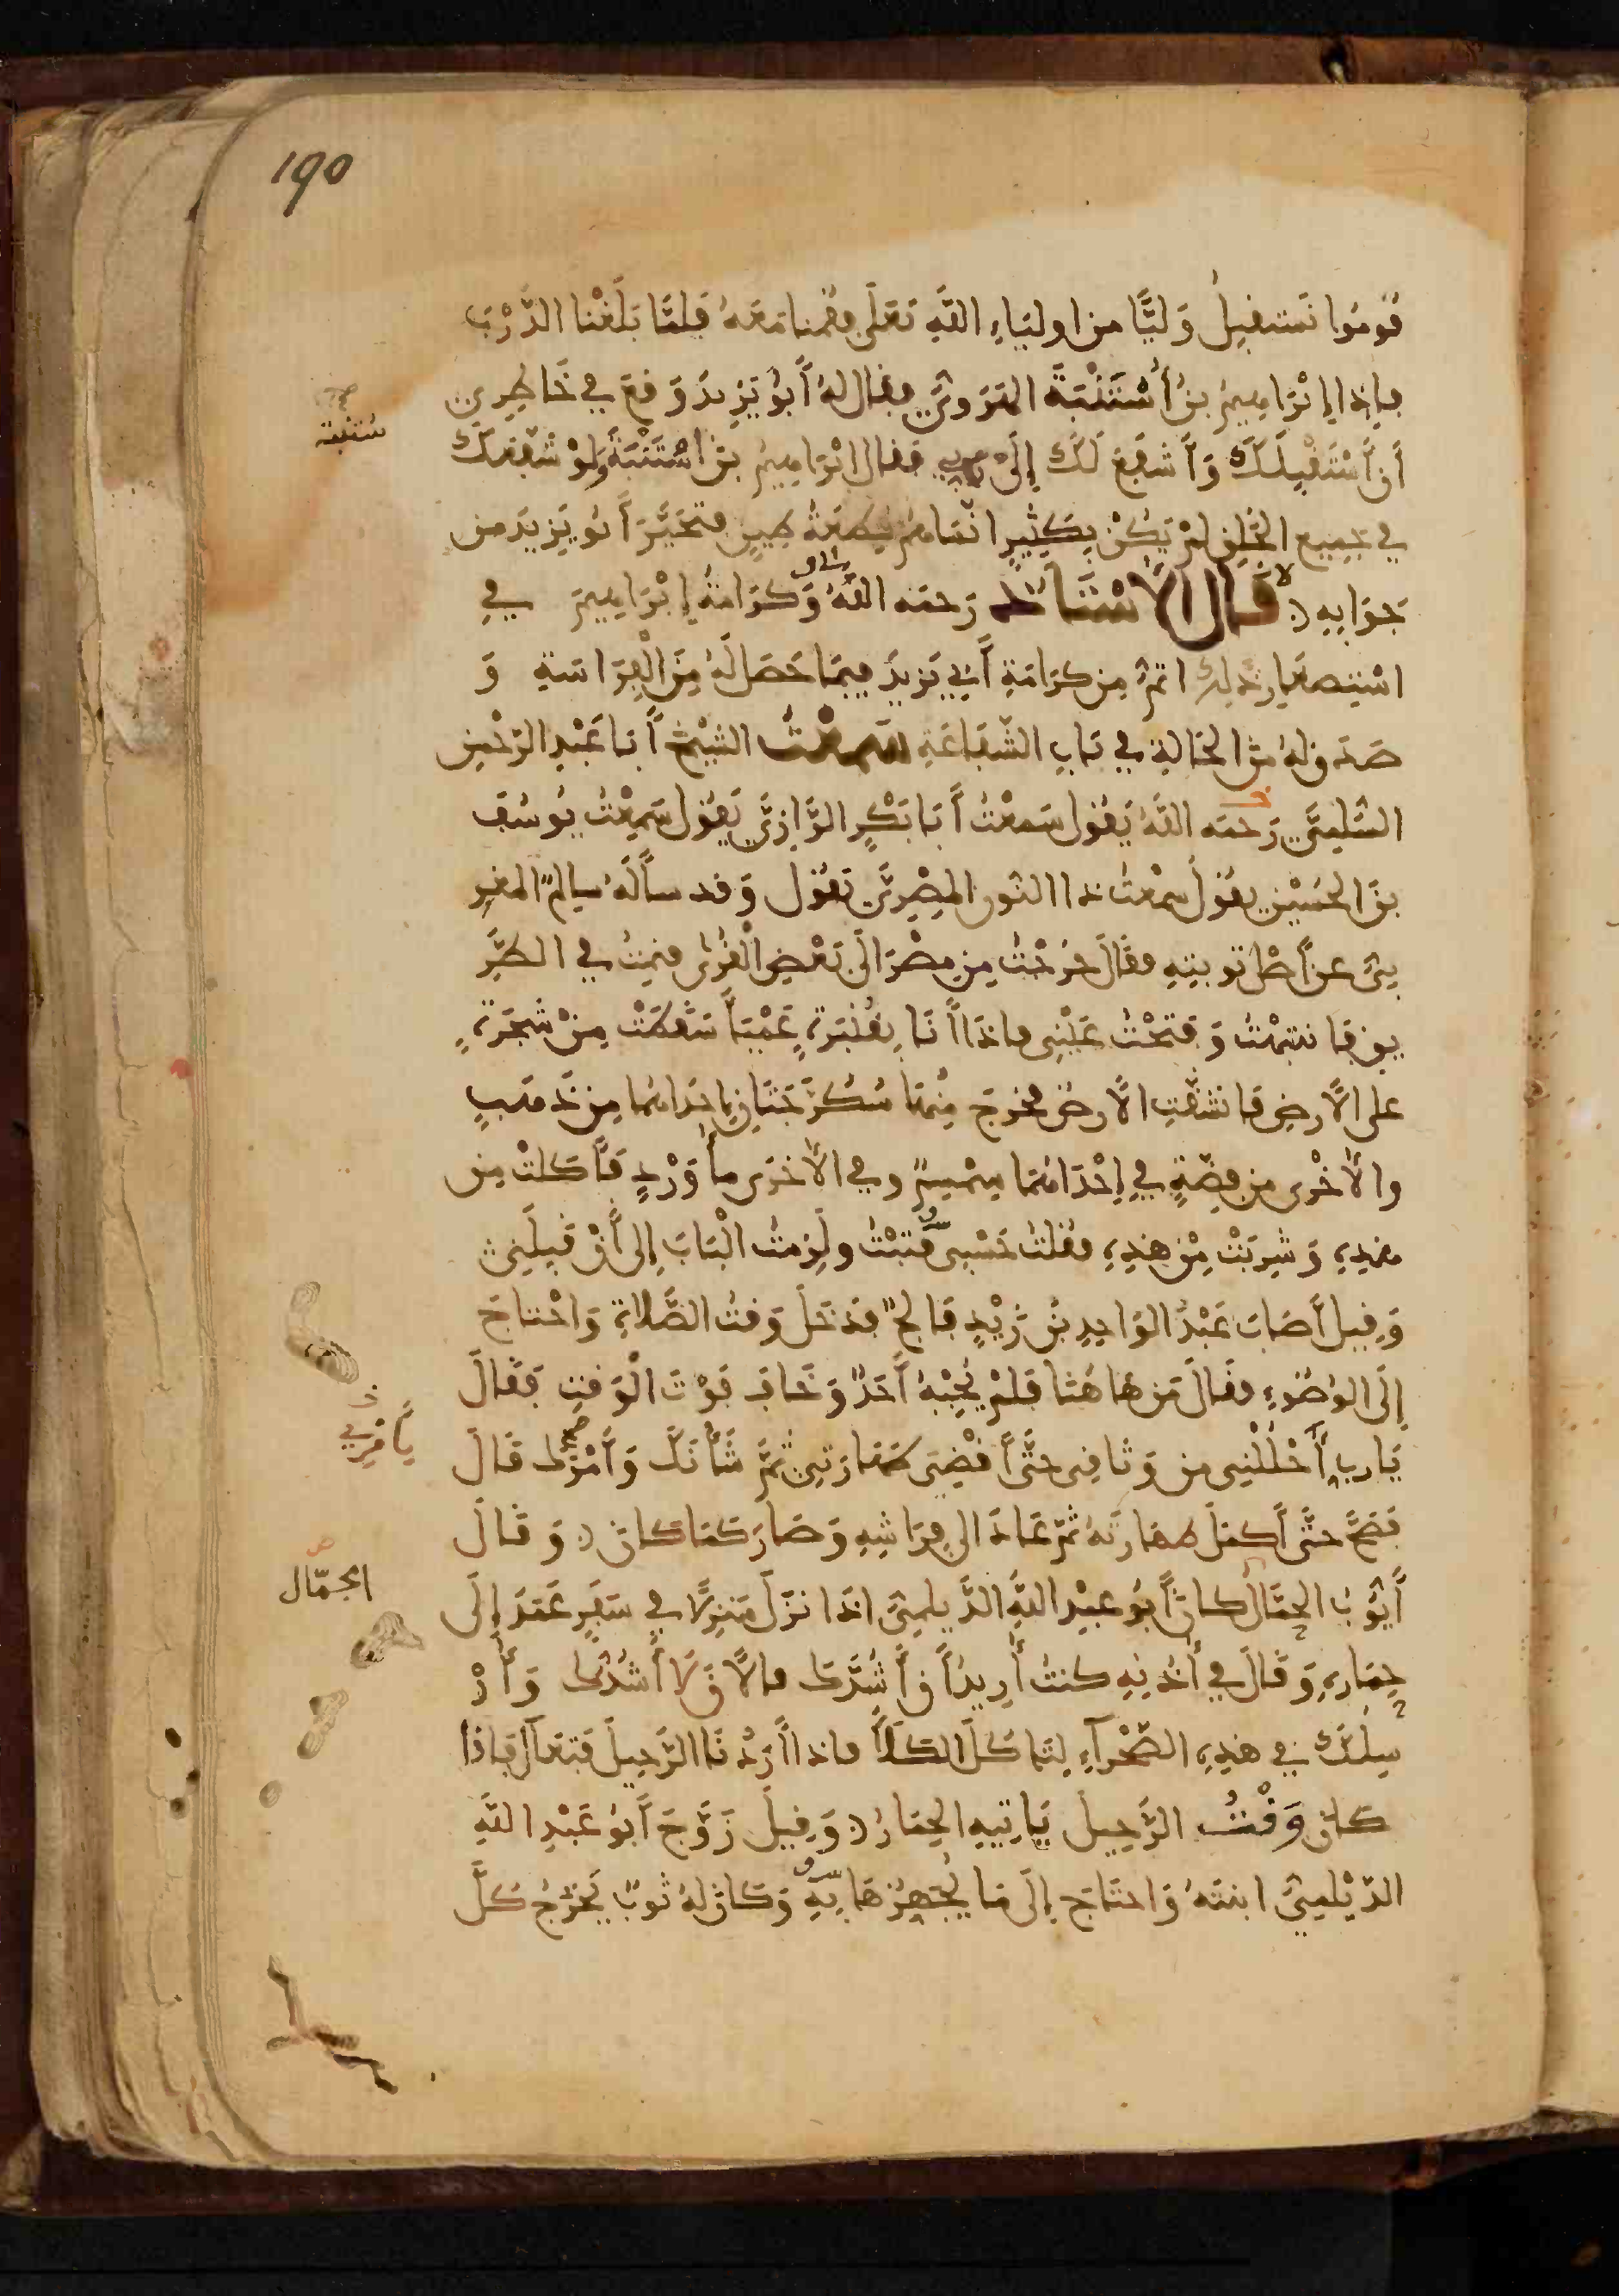 190
قُومُوا نَسْتَقْبِلُ وَلِيًّا من اولياءِ اللهِ تعلى فقمنا مَعَهُ فَلَمَّا بَلَغْنا الدَّرْبَ
فإذا إبْرَاهِيمُ بنُ أُسْتَنْبَةَ الهَرَوِيُّ فقال له أَبُو يَزِيدَ وَقَعَ في خَاطِرِي
سُتنبة
أن أَسْتَقْبِلَكَ وَأَشْفَعَ لَكَ إِلَى ربي فقال ابْرَاهِيمُ بنُ أُسْتَنْبَةَ وَلَوْ شَفَّعَكَ
في جَمِيع الخَلْقِ لمْ يَكُنْ بِكَثِيرٍ انّمَا هُمْ قِطْعَةُ طِينٍ فتَحَيَّرَ أَبُو يَزِيدَ من
جَوَابِهِ قَالَ الأُسْتَاذ رَحمَه اللهُ وَكَرَامَةُ إبْرَاهِيمَ في
اسْتِصْغَارِ ذلِك اتَمُّ مِن كَرَامَةِ أَبِي يَزِيدَ فِيمَا حَصَلَ لَهُ مِنَ الْفِرَاسَةِ وَ
صَدَقَ لهُ مِنَ الحَالةِ في بَابِ الشَّفَاعَةِ سَمِعْتُ الشَّيْخَ أَبَا عَبْدِ الرَّحْمنِ
السُّلَمِيَّ رَحمَه اللهُ يَقُول سَمِعْتُ أَبَا بَكْرٍ الرَّازِيَّ يَقُول سَمِعْتُ يُوسُفَ
بنَ الحُسَيْنِ يقُول سمِعْتُ ذا النون المِصْرِيَّ يَقُول وَقد سأَلَهُ سالِمٌ المغرِ
بِيُّ عن أَصْل توبتِهِ فقالَ خرَجْتُ مِن مِصْرَ الَى بَعْضِ الْقُرَى فنِمتُ في الطَّرِ
يقِ فانتبهْتُ وَفتَحْتُ عَيْنِي فاذَا أَنَا بِقُنْبَرَةٍ عَمْيَا سَقَطَتْ مِنْ شَجَرَةٍ
على الأرضِ فانشَقَّتِ الأرضُ فخرجَ مِنْها سُكُرُّجَتَانِ إحْدَاهُما مِن ذَهَبٍ
والأُخْرى من فِضَّةٍ في إِحْدَاهُمَا سِمْسِمٌ وفي الأُخْرَى مأ وَرْدٍ فَأَكَلَتْ مِن
هذِهِ وَشَرِبَتْ مِنْ هذِهِ فقلتُ حَسْبِي قَدْ تُبْتُ ولَزِمتُ الْبَابَ إِلى أَنْ قَبِلَنِي
وَقِيل أَصَابَ عَبْدَ الوَاحِدِ بنَ زَيْدٍ فَالجٌ فدَخَلَ وَقتُ الصَّلاةِ وَاحْتاجَ
إِلَى الوُضُوءِ فقَالَ مَن هَا هُنَا فَلمْ يُجِبْهُ أَحَدٌ وَخَافَ فَوْتَ الْوَقتِ فَقَالَ
يَا رب أَحْلِلْنِي من وَثَاقِي حتَّى أَقْضِيَ طهَارَتِي ثُمَّ شَأْنَكَ وَأَمْرَكَ قَالَ
يَأْمُرْنِي
فَصَحَّ حتَّى أَكمَلَ طهَارَتَهُ ثمّ عَادَ الى فِرَاشِهِ وَصَارَ كَمَا كانَ وَقَالَ
أَيُّوبُ الحَمَّالُ كانَ أَبُو عبْدِ اللَّهِ الدَّيلمِيُّ اذَا نزَلَ مَنزِلًا في سَفَرٍ عَمَدَ إِلَى
الجمّال
حِمَارِهِ وَقَالَ في أُذنِهِ كنتُ أُرِيدُ أَن أَشُدَّكَ فالأَنَ لَا أَشُدُّكَ وَأُرْ
سِلُكَ في هذِهِ الصَّحْرَآءِ لِتَأكُلَ الكَلأَ فاذا أَرَدْنَا الرَّحِيلَ فتعَالَ فَإذَا
كانَ وَقْتُ الرَّحِيلِ يَأتِيهِ الحِمَارُ وَقِيلَ زَوَّجَ أَبُو عَبْدِ اللَّهِ
الدّيْلمِيُّ ابنتَهُ وَاحتَاج إِلَى مَا يُجَهِّزُهَا بِهِ وَكَانَ لهُ ثوبٌ يَخْرُجُ كُلَّ